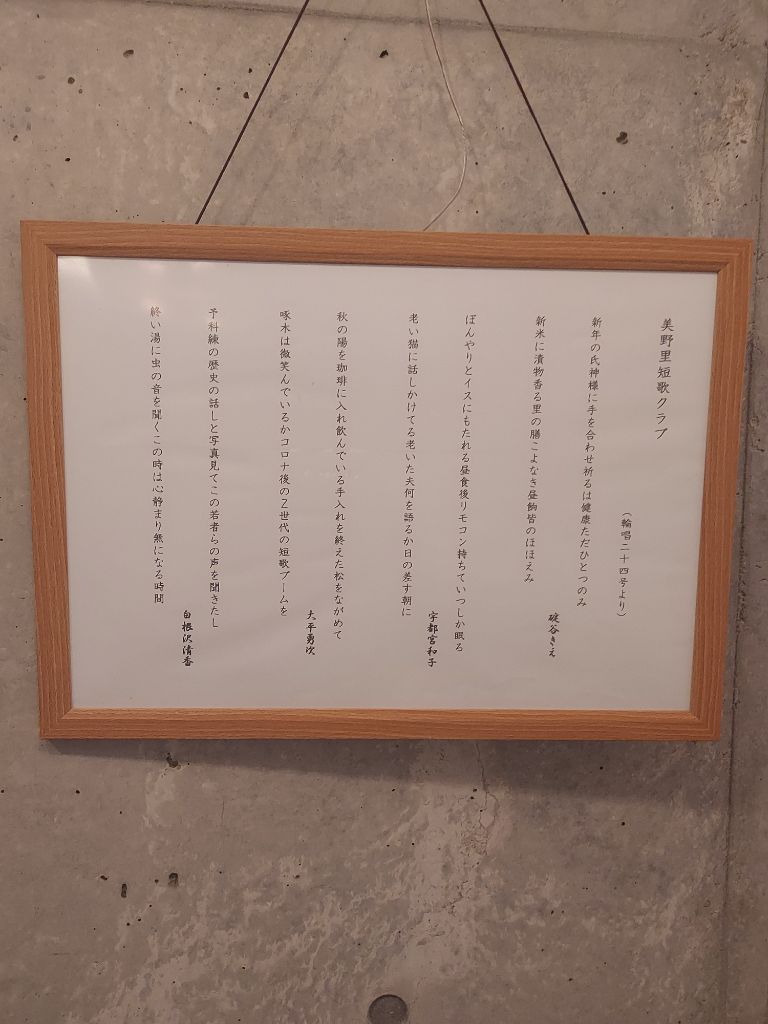 美野里短歌クラブ
(輪唱二十四号より)
新年の氏神様に手を合わせ祈るは健康ただひとつのみ
碇谷きえ
新米に漬物香る里の膳こよなき昼餉皆のほほえみ
ぼんやりとイスにもたれる昼食後リモコン持ちていつしか眠る
宇都宮和子
老い猫に話しかけてる老いた夫何を語るか日の差す朝に
秋の陽を珈琲に入れ飲んでいる手入れを終えた松をながめて
大平勇次
啄木は微笑んでいるかコロナ後のZ世代の短歌ブームを
予科練の歴史の話しと写真見てこの若者らの声を聞きたし
白根沢清香
終い湯に虫の音を聞くこの時は心静まり無になる時間